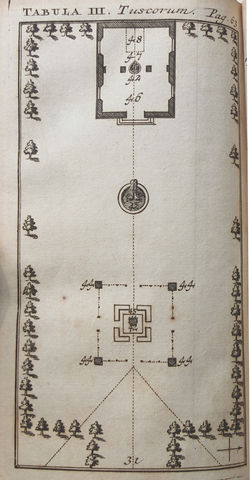 TABULA III. Tuscorum. Pag. 63
48
47
42
46
44 44
45
44 44
31